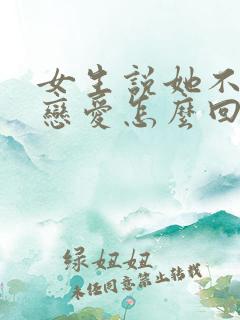 女生說她不
戀愛怎麼回
绿妞妞
未经同意禁止转载